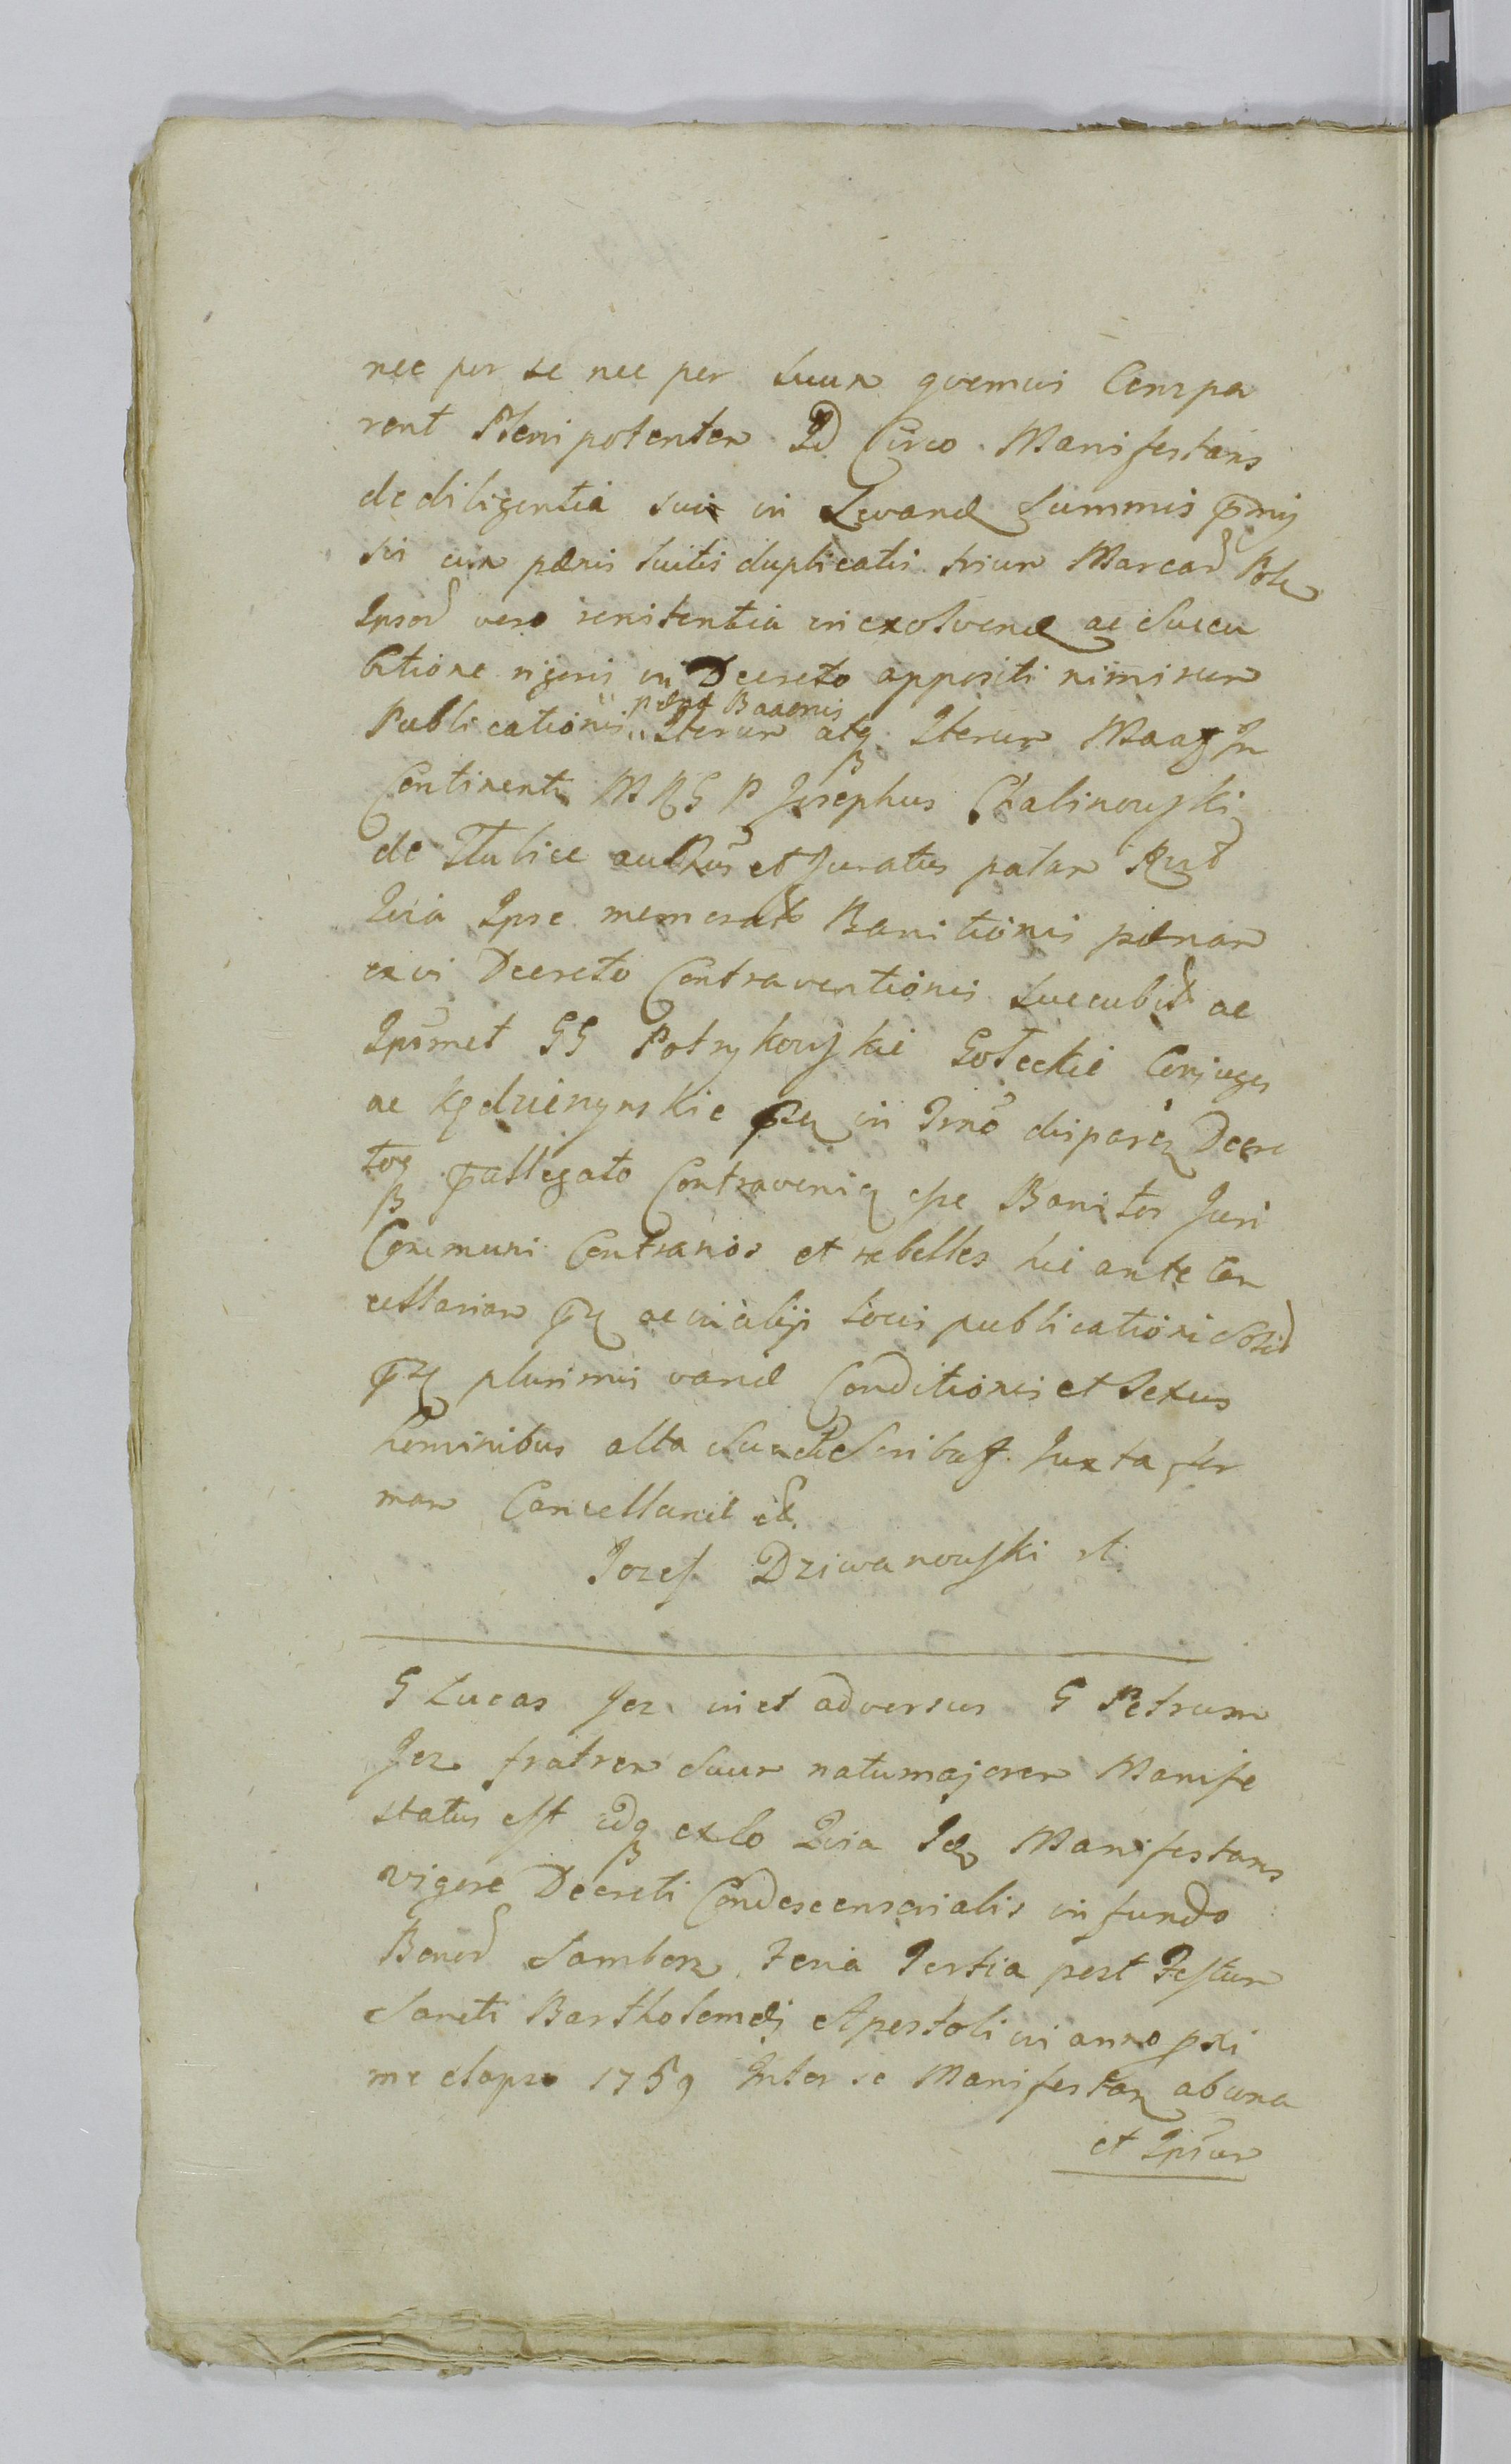 nec per se nec per suum quemvis Compa
rent Plenipotentem Id Circo Manifestans
de diligentia sui in Levand summis pmis
sis cum pœnis luitis duplicatis trium Marcar Pol
Ipsor vero renitentia in exolvend ac succu
bitione rigoris in Decreto appositi nimirum
Publicationis pœnæ Baaonis Iterum atq Iterum
Continenti M R G P Josephus Chalinowski
de Stubice et Juratus palam
Quia Ipse memorat Banitionis pœnam
ex vi Decreto Contraventionis succubit ac
Ipsmet GG Potrykowskie Goleckie Conjuges
ac Kędzierzynskie in dispari Decre
toq pallegato Contraveni esse Banitos Juri
Communi Contrarios et rebelles hic ante Can
cellariam ac in alijs locis publicationi solid
plurimis variæ Conditionis et Sexus
hominibus alta Juxta for
mam Cancellariæ
Jozef Dziwanowski
G Lucas Jez in et adversus G Petrum
Jez fratrem suum natumajorem Manife
status est idq ex eo Quia Manifestans
vigore Decreti Condescensorialis in fundo
Bonor Samborz Feria Tertia post Festum
Sancti Bartholomæi Apostoli in anno pxi
me elapso 1759 Inter se Manifestan ab una
et Ipsum